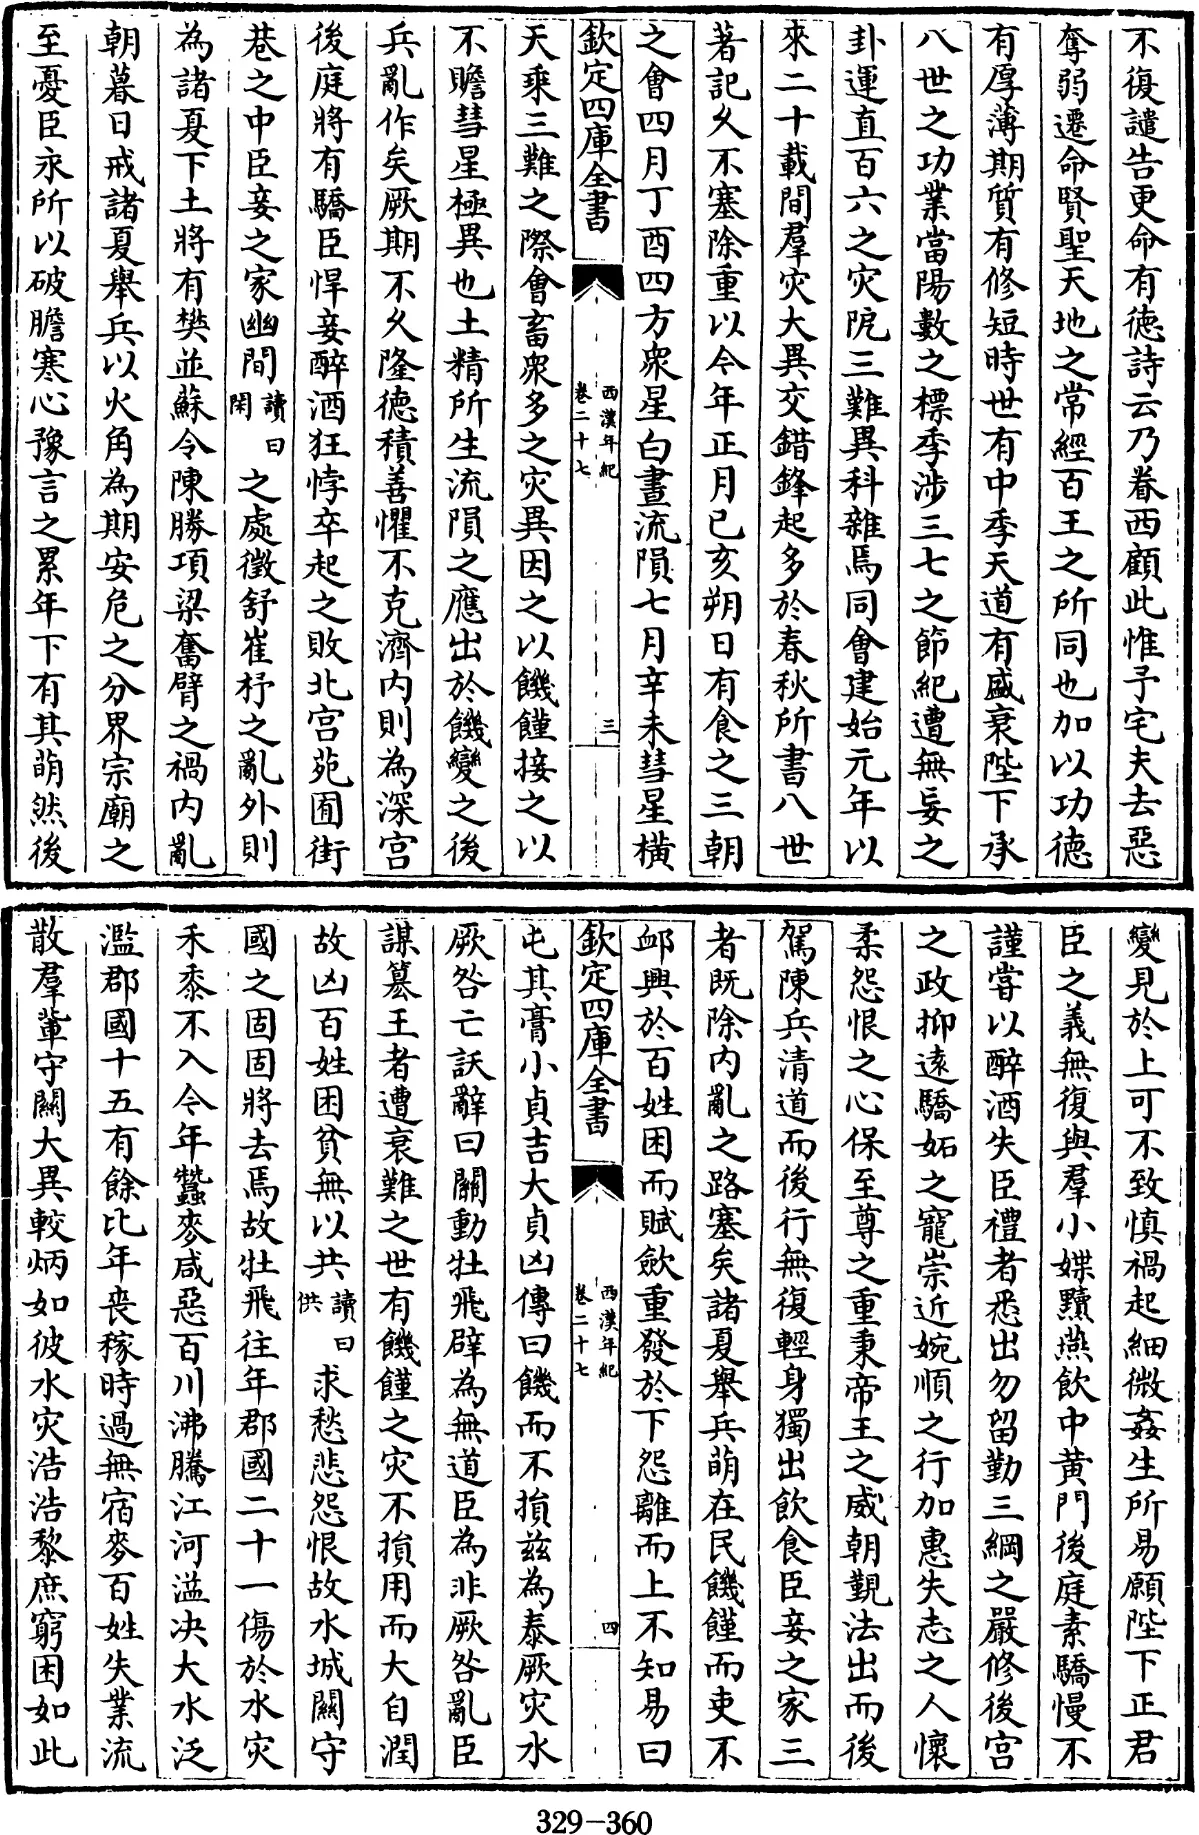 不復譴告更命有德詩云乃眷西顧此惟予宅夫去惡
奪弱遷命賢聖天地之常經百王之所同也加以功德
有厚薄期質有修短時世有中季天道有盛衰陛下承
八世之功業當陽數之標季涉三七之節紀遭無妄之
卦運直百六之灾阸三難異科雜焉同會建始元年以
來二十載間羣灾大異交錯鋒起多於春秋所書八世
著記久不塞除重以今年正月己亥朔日有食之三朝
之會四月丁酉四方衆星白晝流隕七月辛未彗星橫
欽定四庫全書
西漢年紀
卷二十七
三
天乘三難之際會畜衆多之灾異因之以饑饉接之以
不贍彗星極異也土精所生流隕之應出於饑變之後
兵亂作矣厥期不久隆德積善懼不克濟内則為深宫
後庭將有驕臣悍妾醉酒狂悖卒起之敗北宫苑囿街
巷之中臣妾之家幽間讀曰閑之處徵舒崔杼之亂外則
為諸夏下土將有樊並蘇令陳勝項梁奮臂之禍内亂
朝暮日戒諸夏舉兵以火角為期安危之分界宗廟之
至憂臣永所以破膽寒心豫言之累年下有其萌然後
變見於上可不致慎禍起細微姦生所易願陛下正君
臣之義無復與羣小媟黷燕飲中黄門後庭素驕慢不
謹嘗以醉酒失臣禮者悉出勿留勤三綱之嚴修後宫
之政抑遠驕妬之寵崇近婉順之行加惠失志之人懷
柔怨恨之心保至尊之重秉帝王之威朝覲法出而後
駕陳兵清道而後行無復輕身獨出飲食臣妾之家三
者既除内亂之路塞矣諸夏舉兵萌在民饑饉而吏不
卹興於百姓困而賦歛重發於下怨離而上不知易曰
欽定四庫全書
西漢年紀
卷二十七
四
屯其膏小貞吉大貞凶傳曰饑而不損兹為泰厥灾水
厥咎亡訞辭曰關動牡飛辟為無道臣為非厥咎亂臣
謀簒王者遭衰難之世有饑饉之灾不損用而大自潤
故凶百姓困貧無以共讀曰供求愁悲怨恨故水城關守
國之固固將去焉故牡飛往年郡國二十一傷於水灾
禾黍不入今年蠶麥咸惡百川沸騰江河溢决大水泛
濫郡國十五有餘比年喪稼時過無宿麥百姓失業流
散羣輩守關大異較炳如彼水灾浩浩黎庶窮困如此
329-360